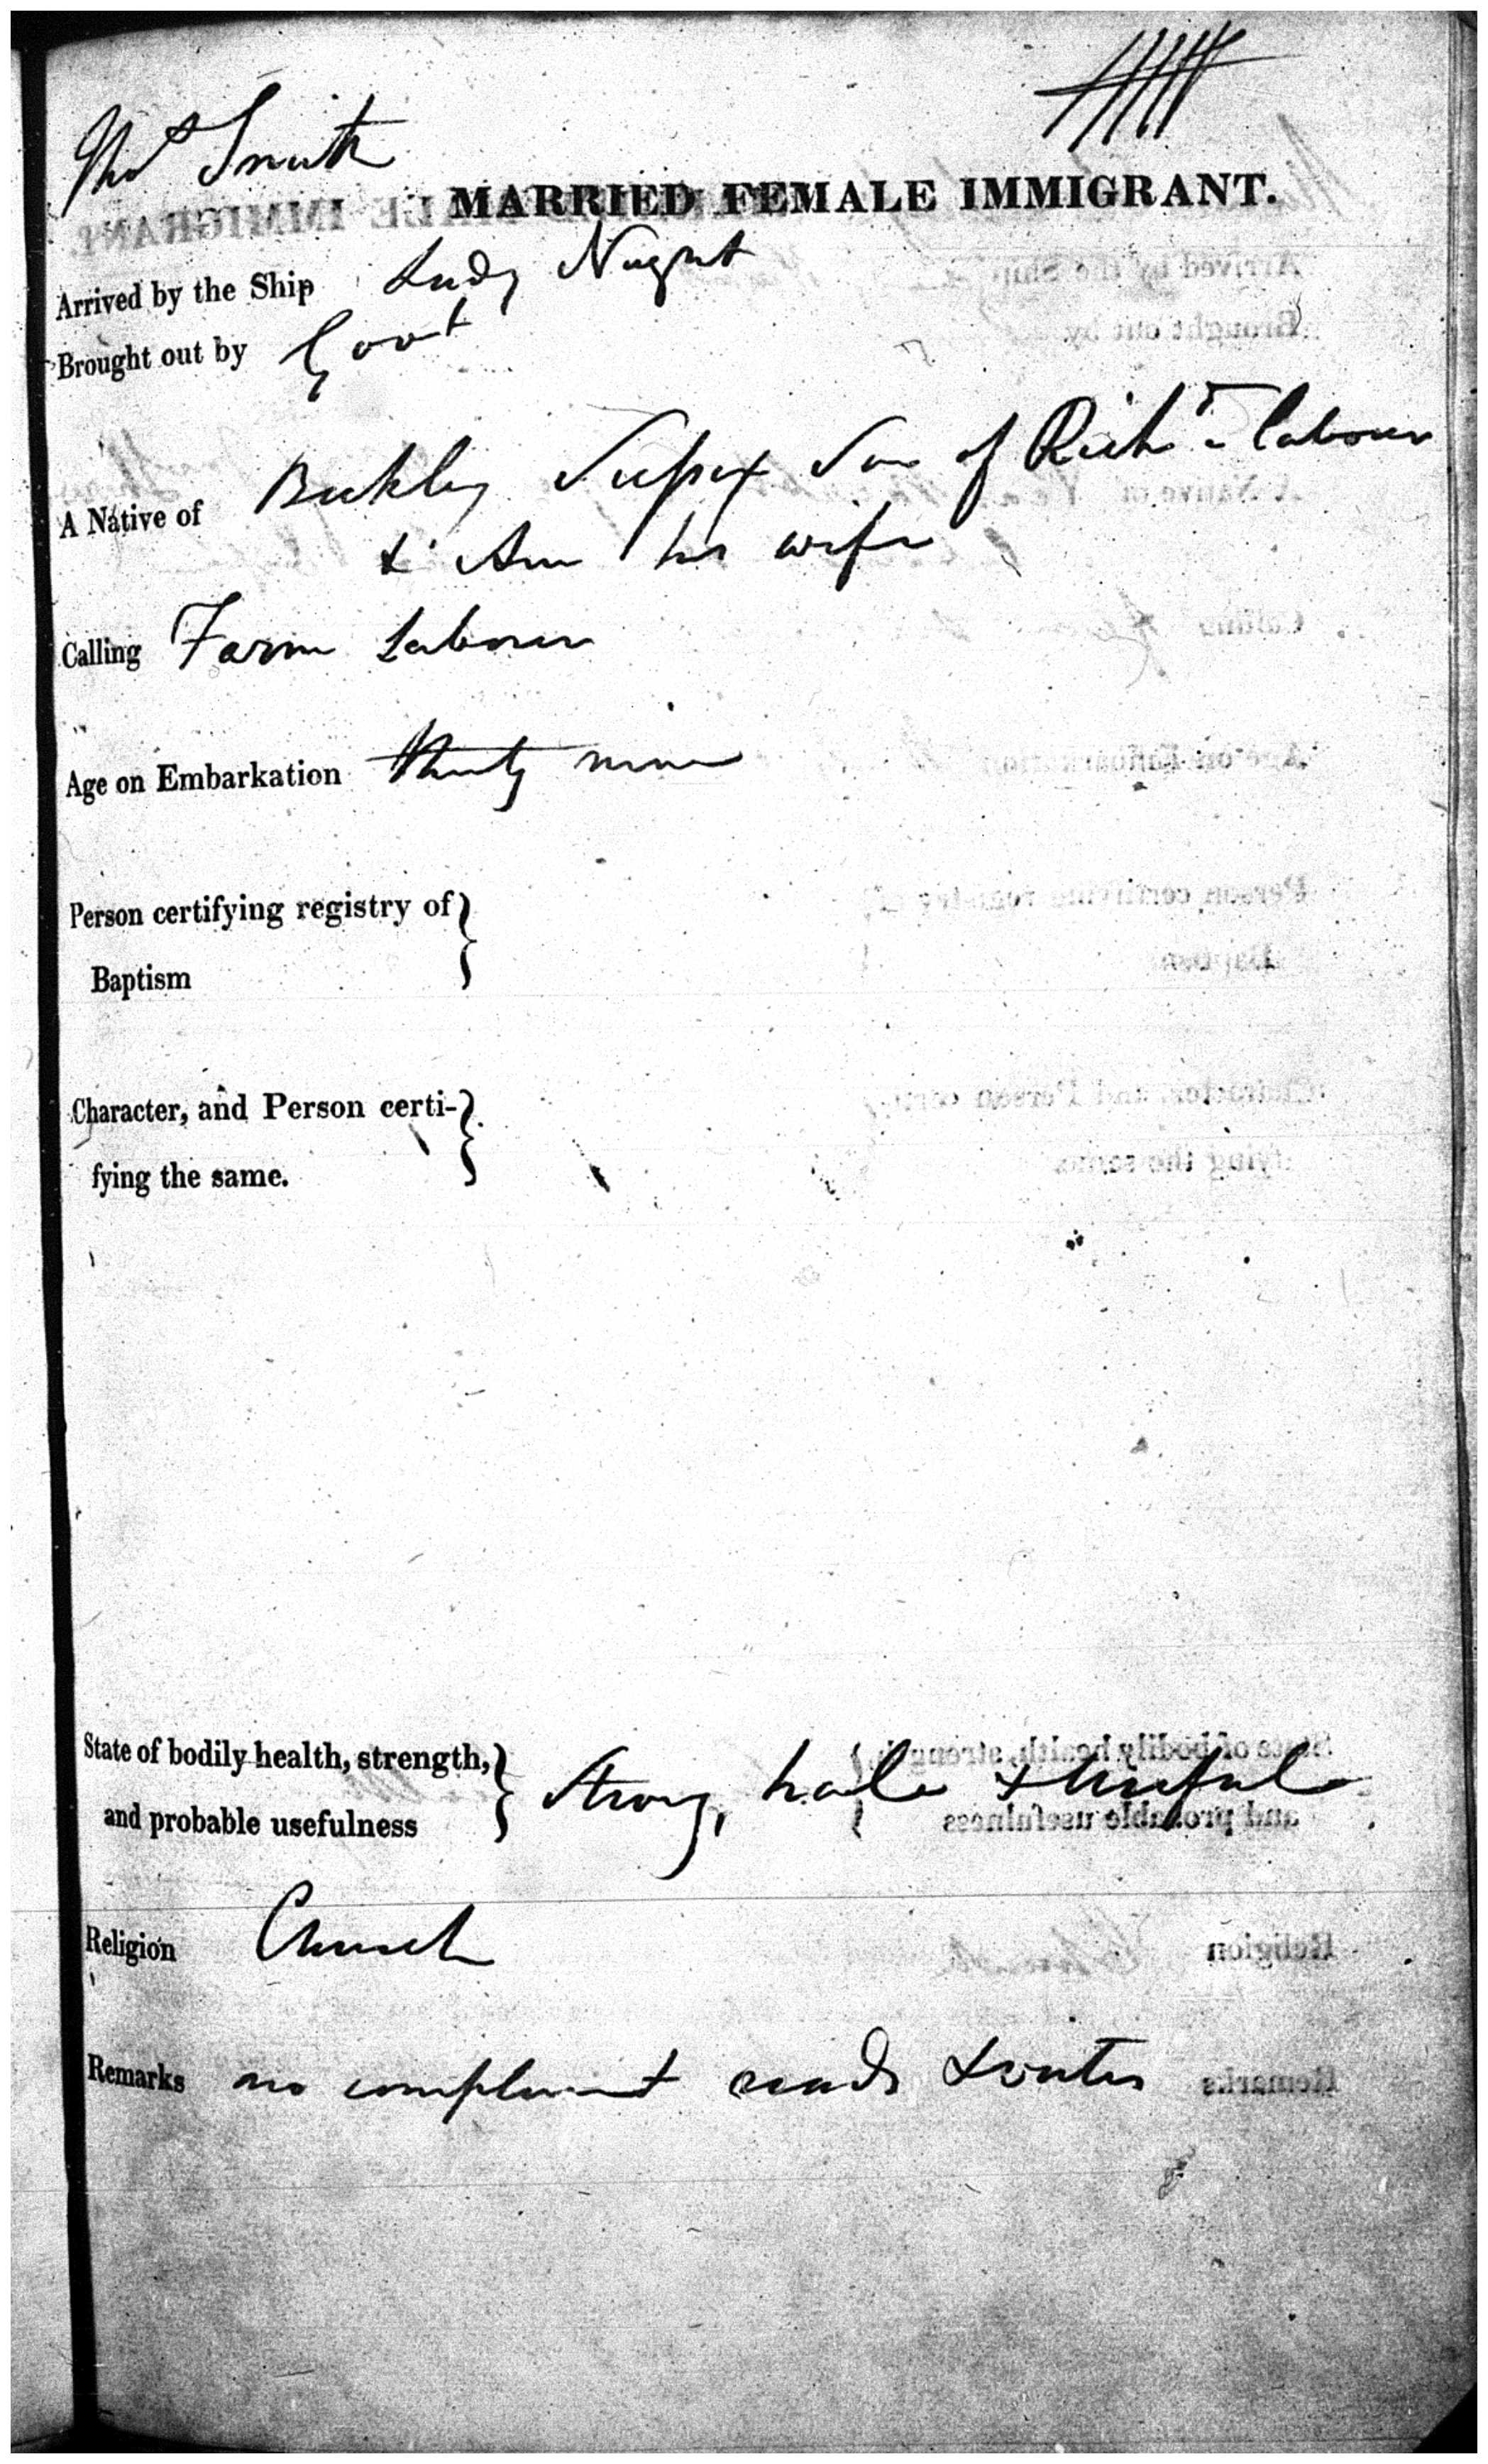 Thos Smith
MARRIED FEMALE IMMIGRANT.
Arrived by the Ship Lady Nugent
Brought out by Govt
A Native of Beckley Sussex Son of Richd a labourer
& Ann his wife
Calling Farm Labourer
Age on Embarkation Thirty nine
Person certifying registry of
Baptism
Character, and Person certi-
fying the same.
State of bodily health, strength, Strong, hale & Useful
and probable usefulness
Religion Church
Remarks no complaint reads & writes